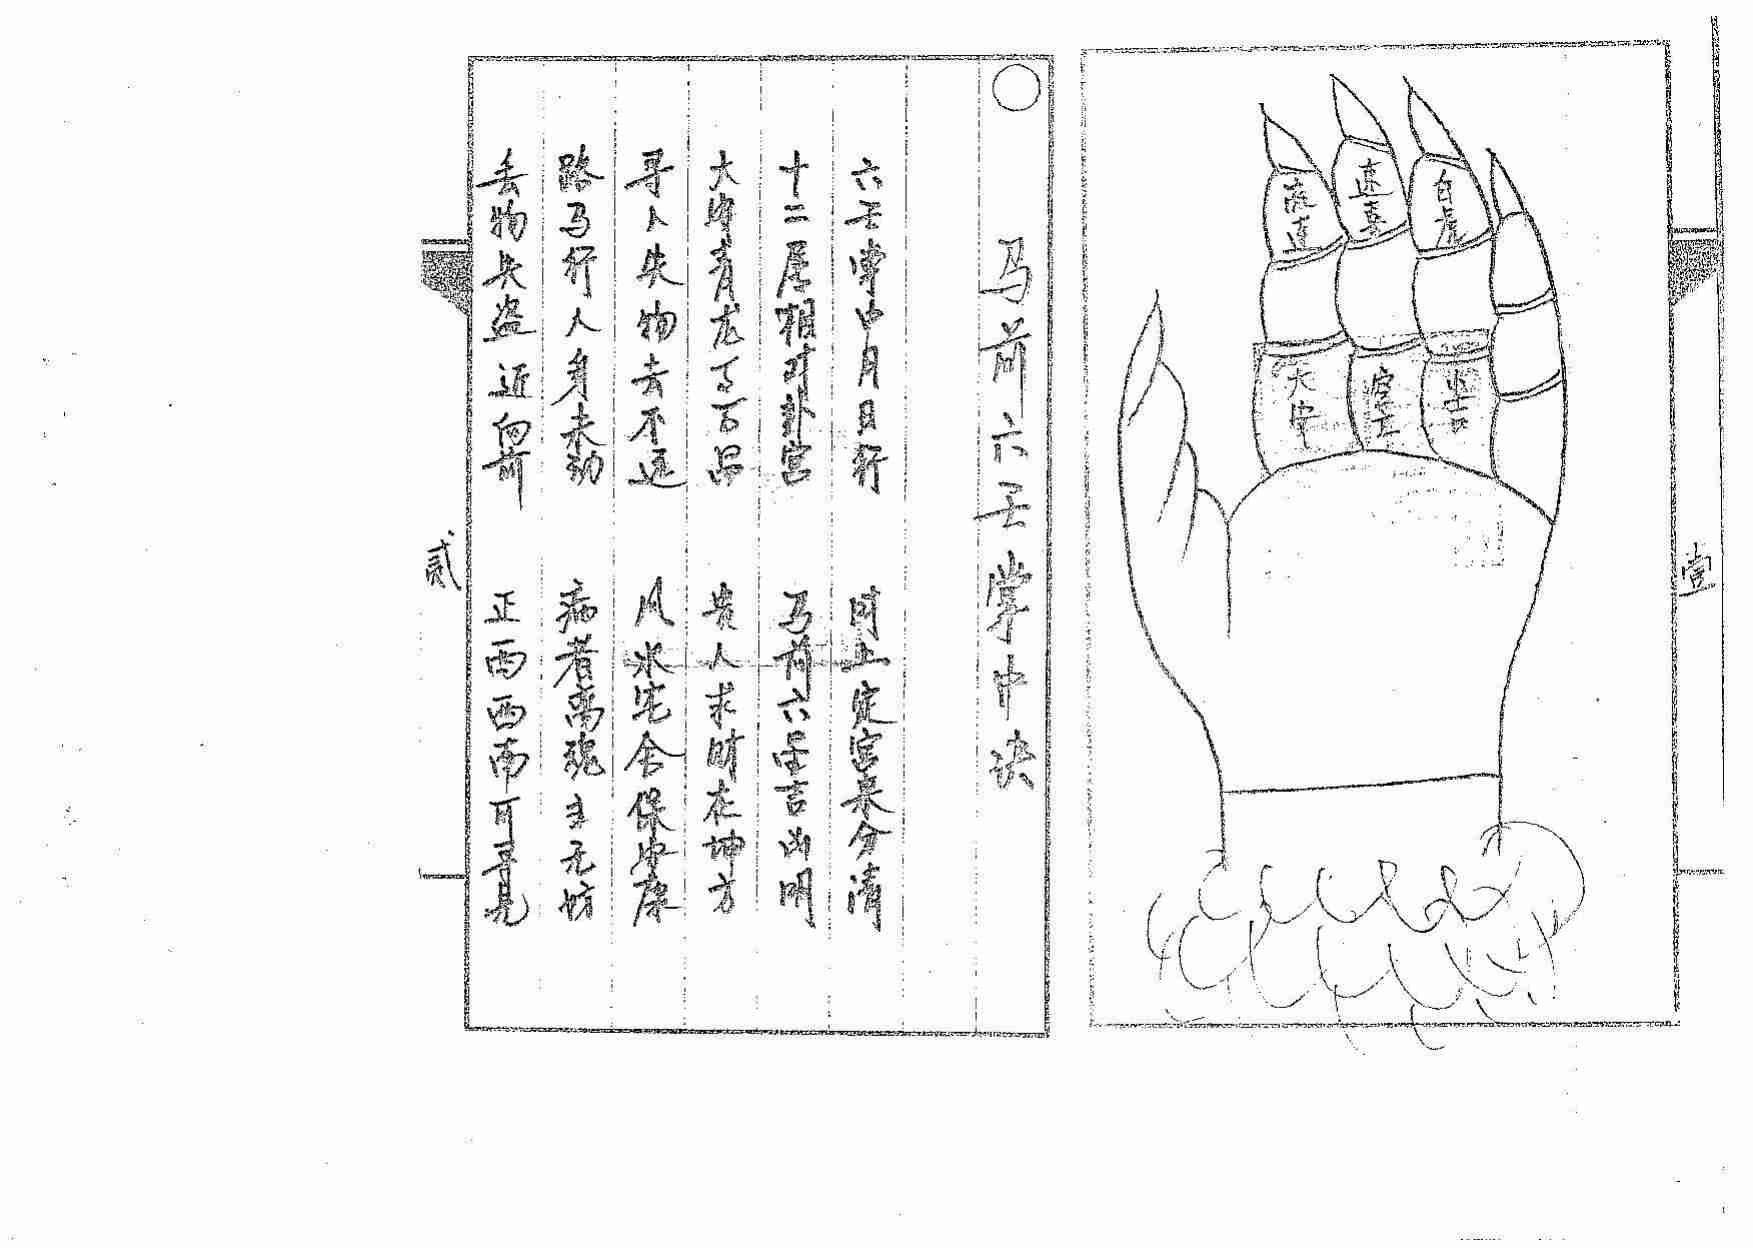 壹
流连
速喜
白虎
大安
空亡
小吉
马前六壬掌中决
六壬掌中月日行 时上定宫来分清
十二属相对卦宫 马前六壬吉凶明
大安青龙 百 贵人求财在坤方
寻人失物去不远 风水宅舍保安康
路马行人身未动 病者离魂主无妨
丢物失盗近向前 正西西南可寻见
贰